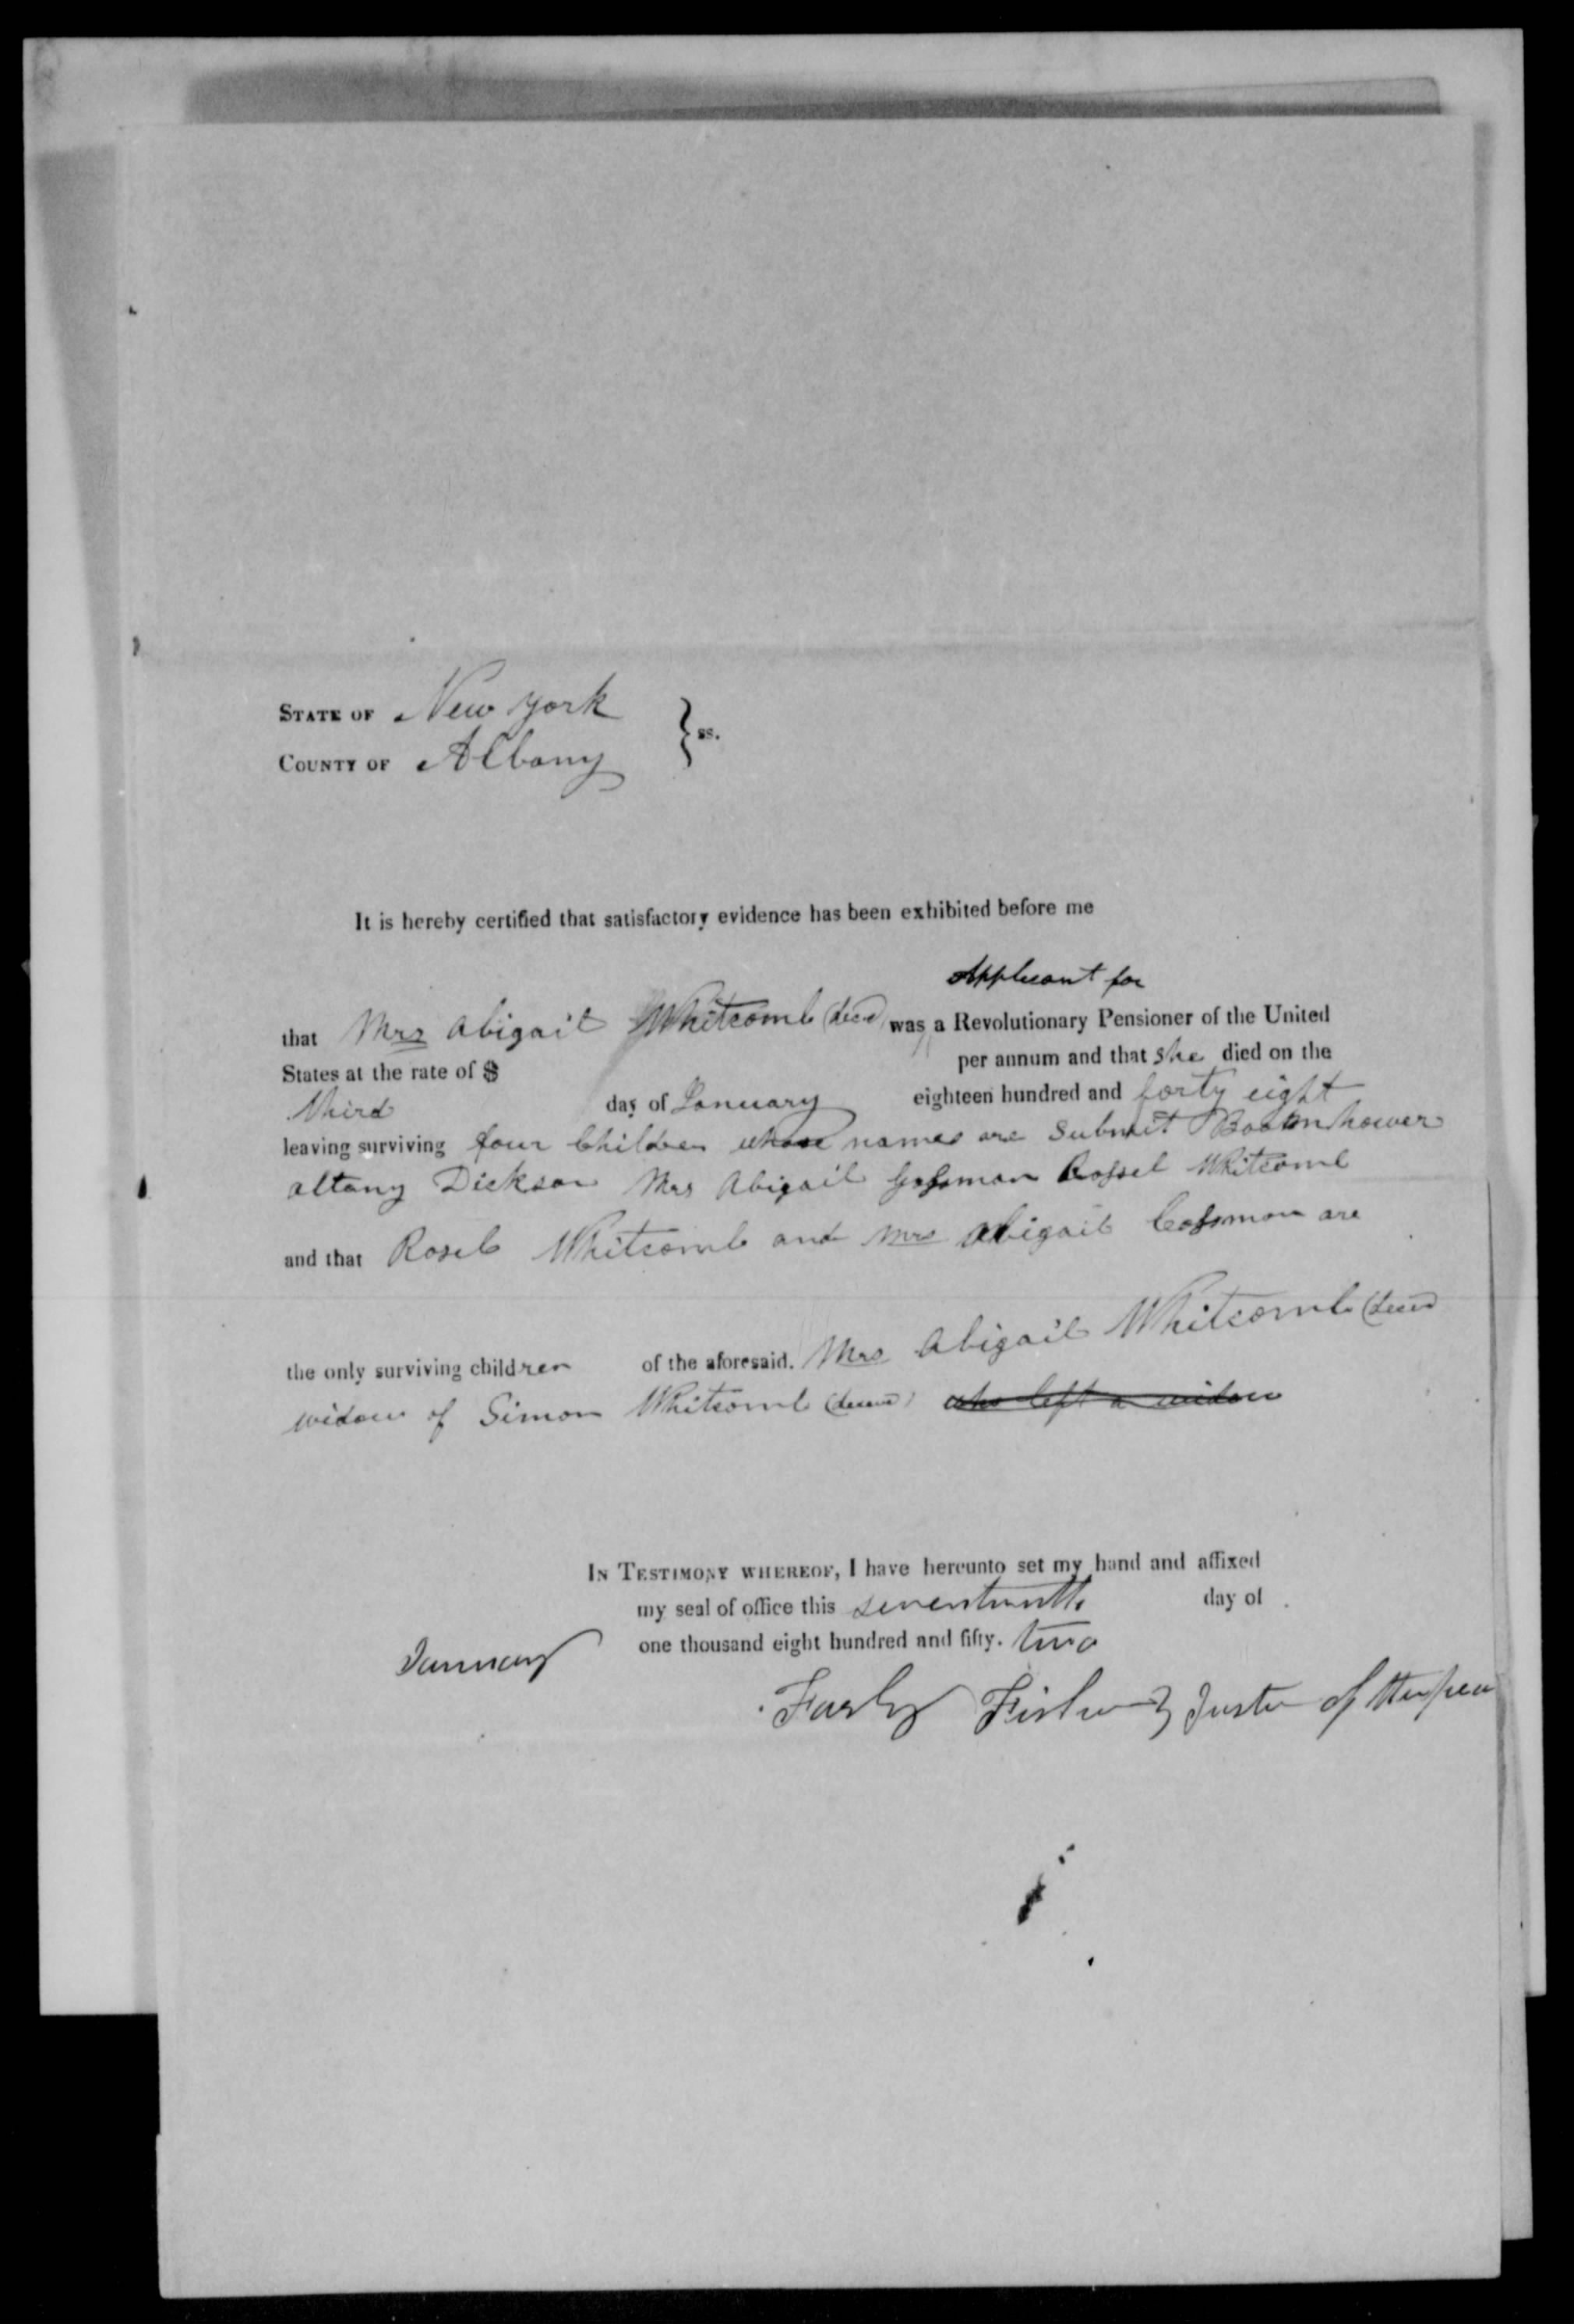 STATE OF New York
COUNTY OF Albany } ss.
It is hereby certified that satisfactory evidence has been exhibited before me
Applicant for
that Mrs Abigail Whitcomb (decd) was a Revolutionary Pensioner of the United
States at the rate of $ per annum and that she died on the
third day of January eighteen hundred and forty eight
leaving surviving four Children whose names are Submit Boomhower
altany Dickson Mrs Abigail Gossman Rossel Whitcomb
and that Rosel Whitcomb and Mrs Abigail Cossmon are
the only surviving children of the aforesaid. Mrs Abigail Whitcomb (decd
widow of Simon Whitcomb (decd) who left a widow
IN TESTIMONY WHEREOF, I have hereunto set my hand and affixed
my seal of office this seventeenth day of
January one thousand eight hundred and fifty. two
Justice of the peace